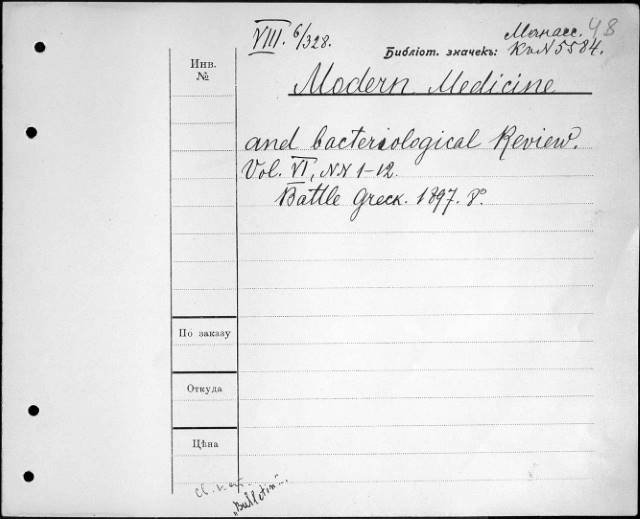 VIII. 6/328.
Манасс. 48
Библіот. значекъ: К. № 5584.
Инв.
№
Modern Medicine
and bacteriological Review.
Vol. VI, NN 1-12.
Battle Greck. 1897. 8°.
По заказу
Откуда
Цѣна
„Bulletin“